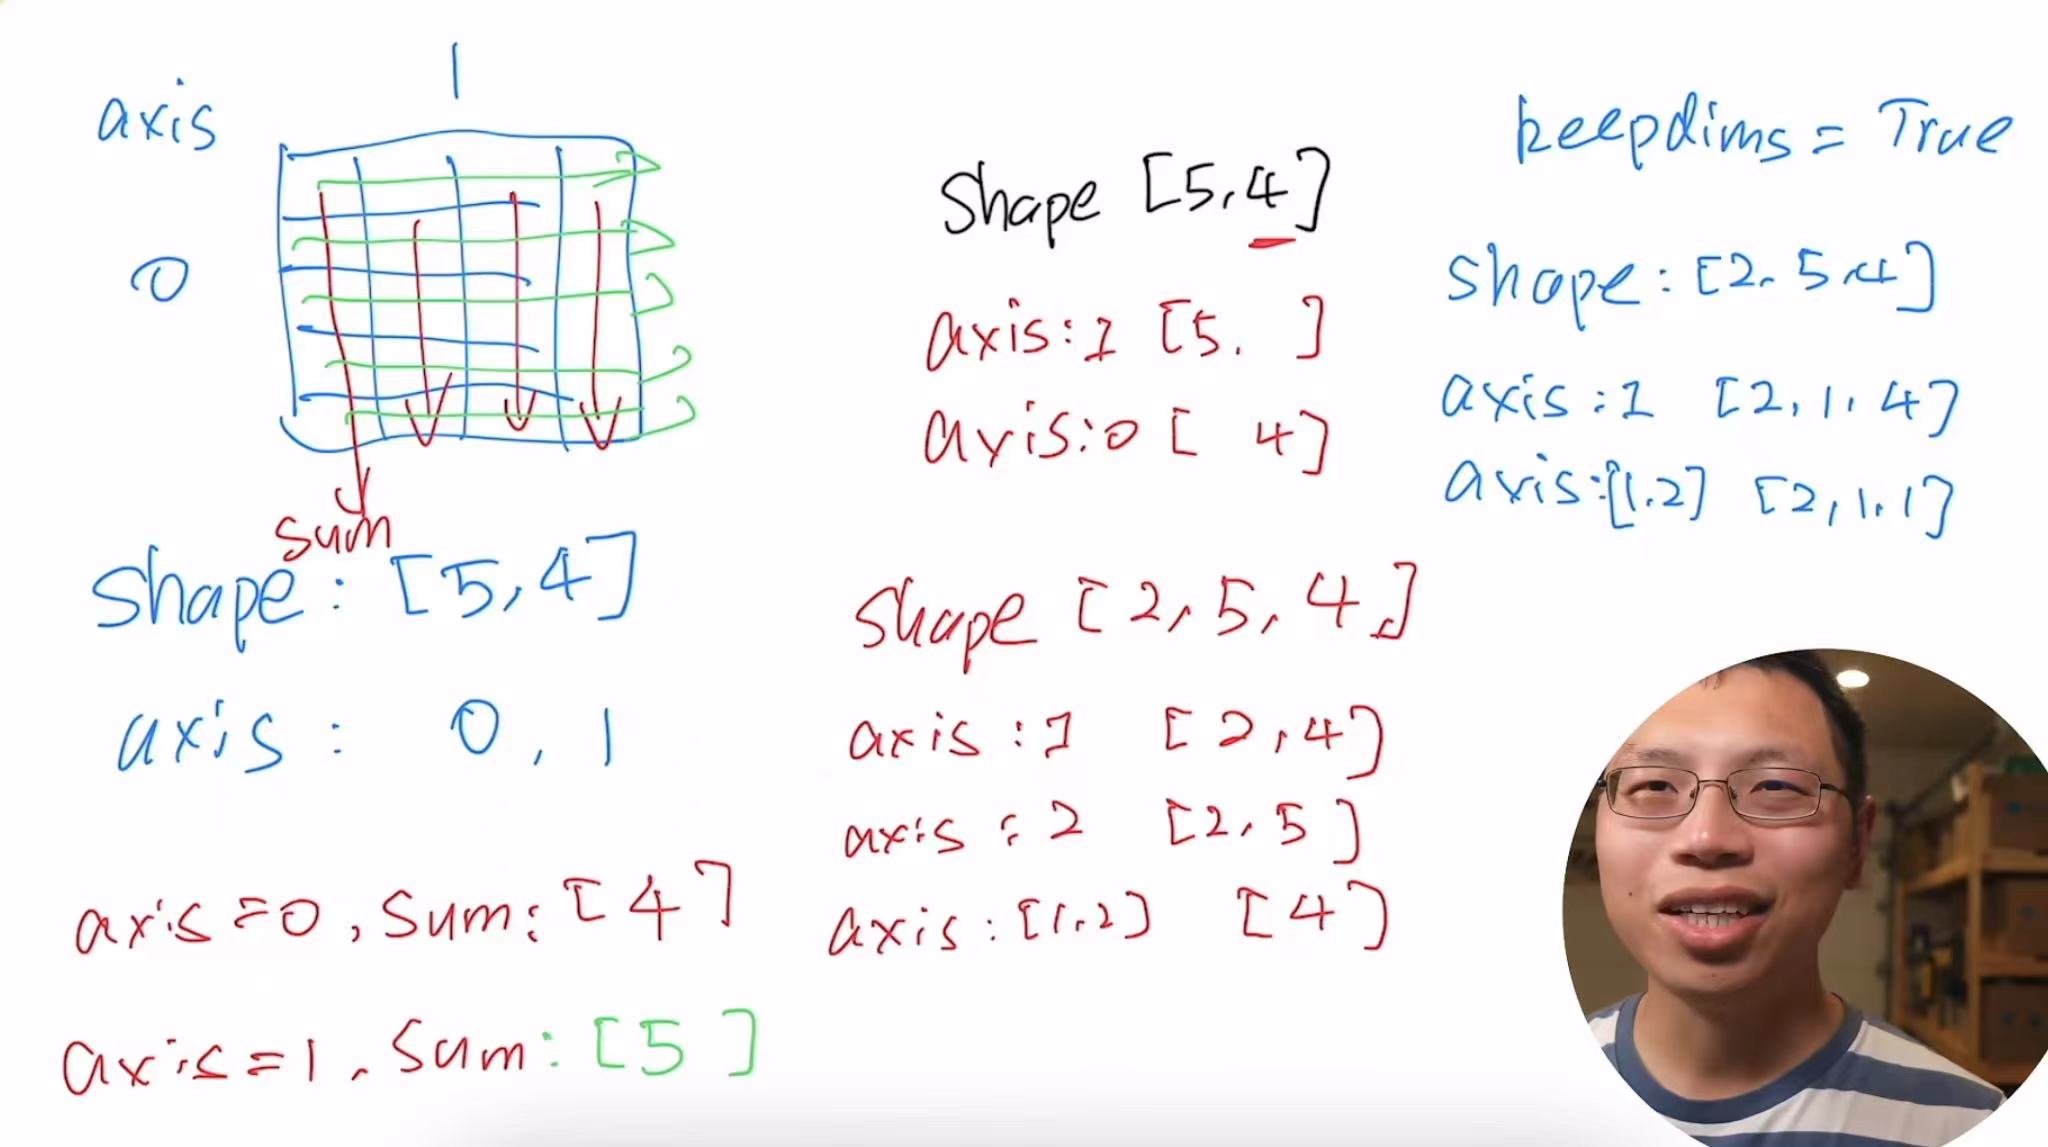 axis
1
0
sum
shape: [5,4]
axis: 0, 1
axis=0, sum: [4]
axis=1, sum: [5 ]
shape [5,4]
axis:1 [5, ]
axis:0 [ 4]
shape [2, 5, 4,]
axis:1 [2,4]
axis:2 [2,5]
axis:[1,2] [4]
keepdims = True
shape: [2,5,4]
axis:1 [2,1,4]
axis:[1,2] [2,1,1]